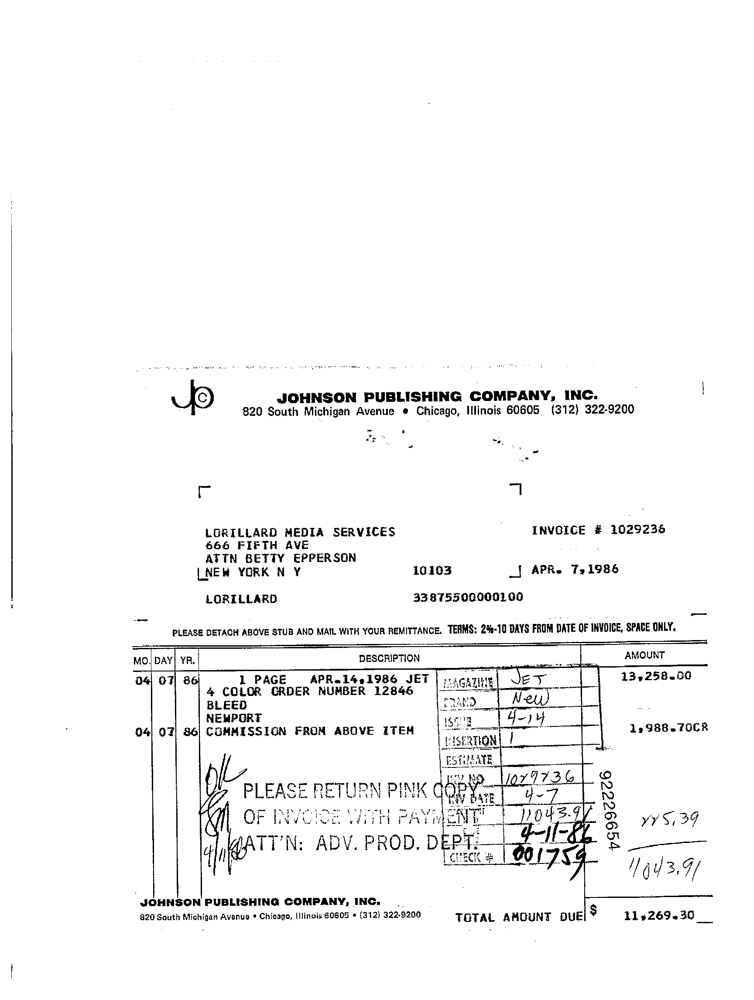 JOHNSON PUBLISHING COMPANY, INC.
820 South Michigan Avenue • Chicago, Illinois 60605 (312) 322-9200
LORILLARD MEDIA SERVICES
666 FIFTH AVE
ATTN BETTY EPPERSON
NEW YORK N Y 10103
INVOICE # 1029236
APR. 7,1986
LORILLARD 33875500000100
PLEASE DETACH ABOVE STUB AND MAIL WITH YOUR REMITTANCE. TERMS: 2%-10 DAYS FROM DATE OF INVOICE, SPACE ONLY.
MO. DAY YR. DESCRIPTION AMOUNT
04 07 86 1 PAGE APR.14,1986 JET 13,258.00
4 COLOR ORDER NUMBER 12846
BLEED
NEWPORT
04 07 86 COMMISSION FROM ABOVE ITEM 1,988.70CR
MAGAZINE JET
BRAND New
ISSUE 4-14
INSERTION 1
ESTIMATE
INV NO 1029236
INV DATE 4-7
11043.91
4-11-86
CHECK # 001759
OK
4/11/86
PLEASE RETURN PINK COPY
OF INVOICE WITH PAYMENT"
ATT'N: ADV. PROD. DEPT.
92226654
225.39
11043.91
JOHNSON PUBLISHING COMPANY, INC.
820 South Michigan Avenue • Chicago, Illinois 60605 • (312) 322-9200
TOTAL AMOUNT DUE $ 11,269.30